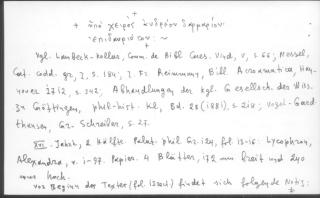 +
+ ἀπὸ χειρος ἀνδρέου δαρμαρίου +
ἐπιδαυρίου : ~
Vgl. Lambeck-Kollar, Comm. de Bibl. Caes. Vind., V, S. 66; Nessel,
Cat. codd. gr., I, S. 184; J. Fr. Reimmann, Bibl. Acroamatica, Han-
nover 1712, S. 342; Abhandlungen der kgl. Gesellsch. der Wiss.
zu Göttingen, phil.-hist. Kl., Bd. 28 (1881), S. 210; Vogel-Gard-
thausen, Gr. Schreiber, S. 27.
XVI. Jahrh., 2. Hälfte. Palat. phil. Gr. 124, fol. 13-16: Lycophron,
Alexandra, v. 1-97. Papier. 4 Blätter, 172 mm breit und 240
mm hoch.
Vor Beginn der Textes (fol. 13 recto) findet sich folgende Notiz: